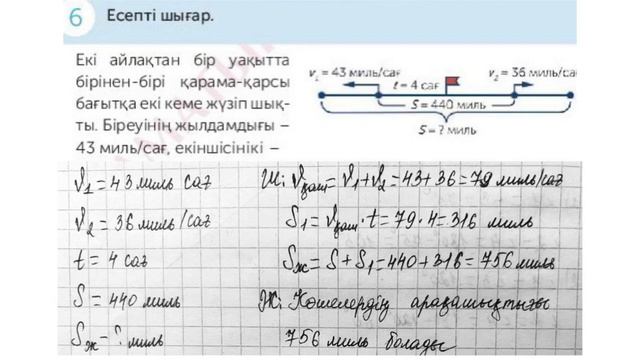 6 Есепті шығар.
Екі айлақтан бір уақытта
бірінен-бірі қарама-қарсы
бағытқа екі кеме жүзіп шық-
ты. Біреуінің жылдамдығы –
43 миль/сағ, екіншісінікі –
v₁ = 43 миль/сағ
v₂ = 36 миль/сағ
t = 4 сағ
S = 440 миль
S = ? миль
ϑ₁ = 43 миль сағ
ϑ₂ = 36 миль/сағ
t = 4 сағ
S = 440 миль
Sж - ? миль
Ш: ϑқаш = ϑ₁ + ϑ₂ = 43 + 36 = 79 миль/сағ
S₁ = ϑқаш · t = 79 · 4 = 316 миль
Sж = S + S₁ = 440 + 316 = 756 миль
Ж: Көшелердің арақашықтығы
756 миль болады